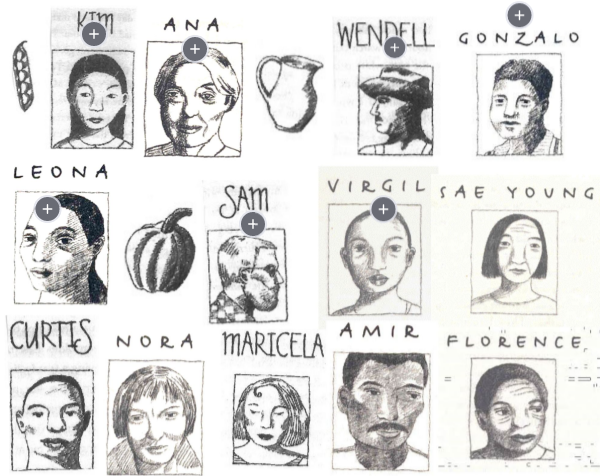 KIM
ANA
WENDELL
GONZALO
LEONA
SAM
VIRGIL
SAE YOUNG
CURTIS
NORA
MARICELA
AMIR
FLORENCE